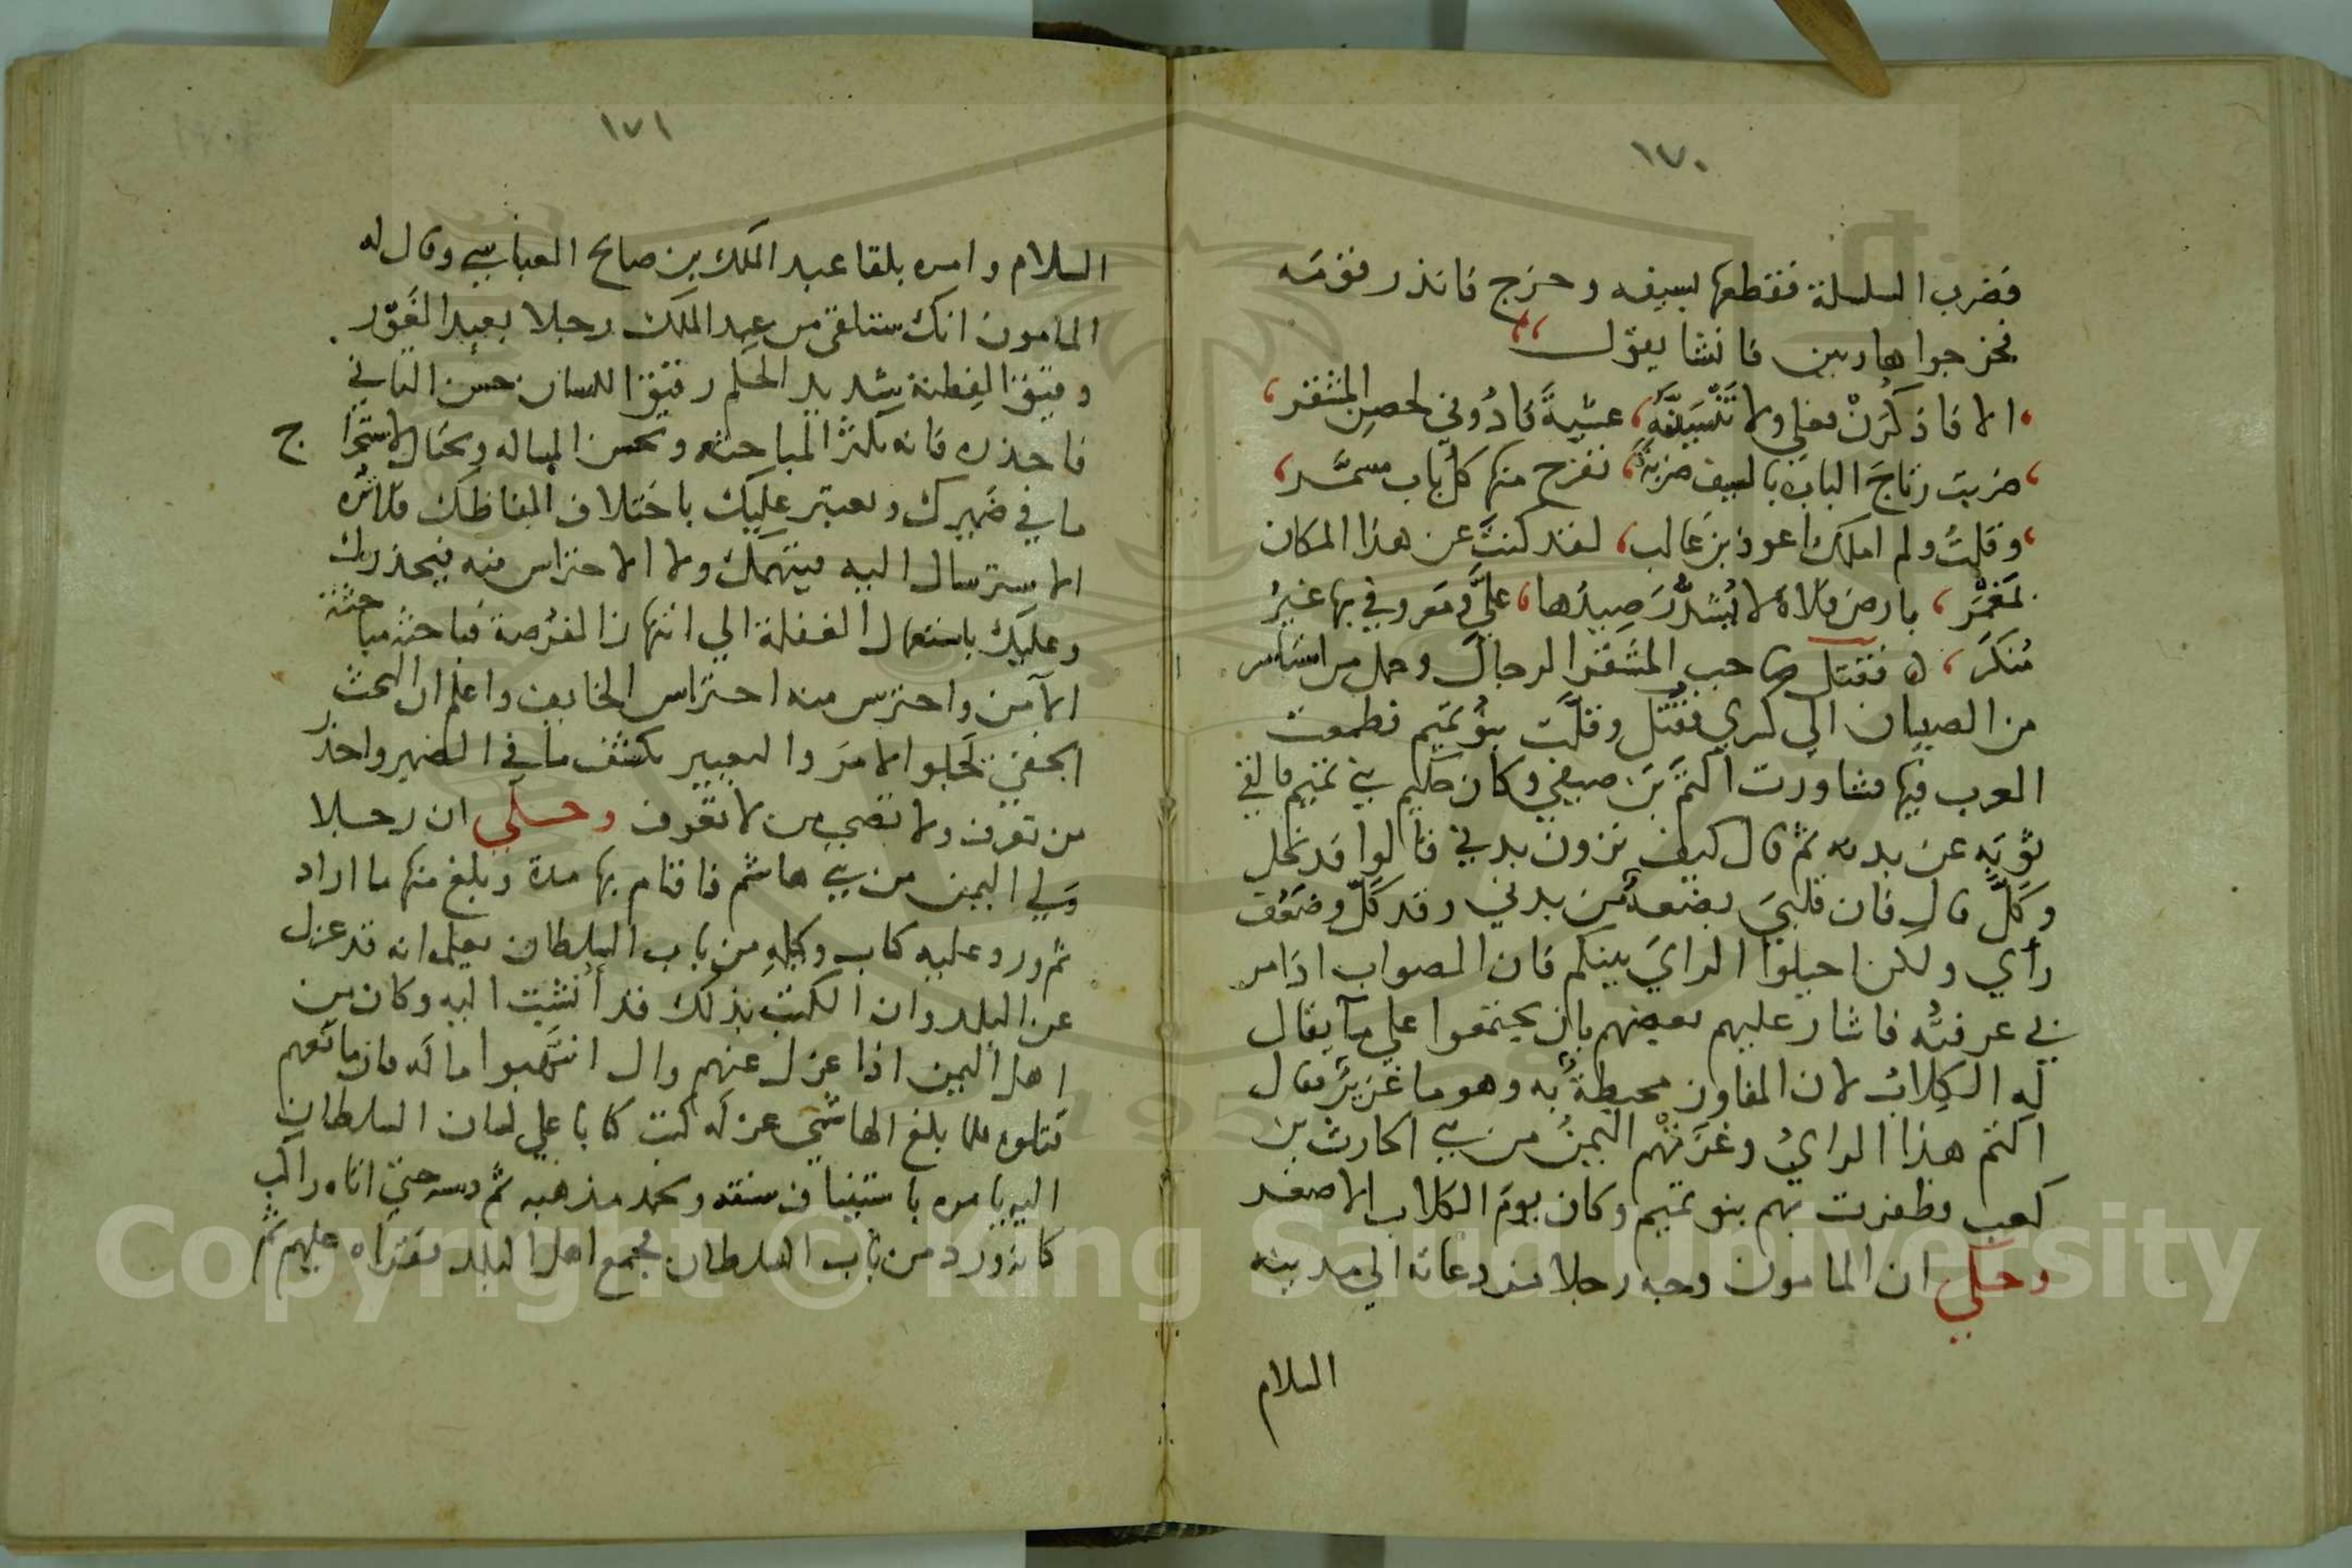 ١٧٠
فضرب السلسلة فقطعها بسيفه وخرج فانذر قومه
فخرجوا هاربين فانشا يقول
الا فاذكرن فعلي ولا تنسينه عشية قادوني لحصن المشقر
ضربت رتاج الباب بالسيف ضربة تفرج منها كل باب مسمر
وقلت ولم املك اعوذ بن غالب لقد كنت عن هذا المكان
بارض فلاة لا صيدها علي ومعروفي بها غير
منكر ه فقتل صاحب المشقر الرجال وحمل من
من الصبيان الي كسري فقتل وقلت بنو تميم فطمعت
العرب فيها فشاورت اكثم بن صيفي وكان حكيم بني تميم فالقي
ثوبه عن بدنه ثم قال كيف ترون بدني قالوا قد نحل
وكل قال فان قلبي بضعة من بدني وقد كل وضعف
رأي ولكن اجيلوا الراي بينكم فان الصواب اذا مر
بي عرفته فاشار عليهم بعضهم بان يجتمعوا علي ما يقال
له الكلاب لان المفاوز محيطة به وهو ما غزير فقال
اكثم هذا الراي وغزتهم اليمن من بني الحارث بن
كعب وظفرت بهم بنو تميم وكان يوم الكلاب الاصغر
وحكي ان المامون وجه رجلا من دعاته الي مدينه
السلام
١٧١
السلام وامره بلقا عبد الملك بن صالح العباسي وقال له
المامون انك ستلقي من عبد الملك رجلا بعيد الغور
دقيق الفطنة شديد الحلم رفيق اللسان حسن التاني
فاحذره فانه يكثر المباحثه ويحسن المساله ويحتال لاستخرا ج
ما في ضميرك ويعتبر عليك باختلاف الفاظك فلا تره
الاسترسال اليه فيتهمك ولا الاحتراس منه فيحذرك
وعليك باستعمال الغفلة الي انتهاز الفرصة فباحثه مباحثة
الآمن واحترس منه احتراس الخايف واعلم ان البحث
الخفي يجلوا الامر والتعبير يكشف ما في الضمير واحذر
من تعرف ولا تصحب من لا تعرف وحكي ان رجلا
ولي اليمن من بني هاشم فاقام بها مدة وبلغ منها ما اراد
ثم ورد عليه كتاب وكيله من باب السلطان يعلمه انه قد عزل
عن البلد وان الكتب بذلك قد أنشيت اليه وكان من
اهل اليمن اذا عزل عنهم وال انتهبوا ماله فان مانعهم
قتلوه فلما بلغ الهاشمي عزله كتب كتابا علي لسان السلطان
اليه يامره باستيناف سنته ويحمد مذهبه ثم دسه حتي اتاه راكب
كانه ورد من باب السلطان فجمع اهل البلد فقراه عليهم ثم
Copyright © King Saud University